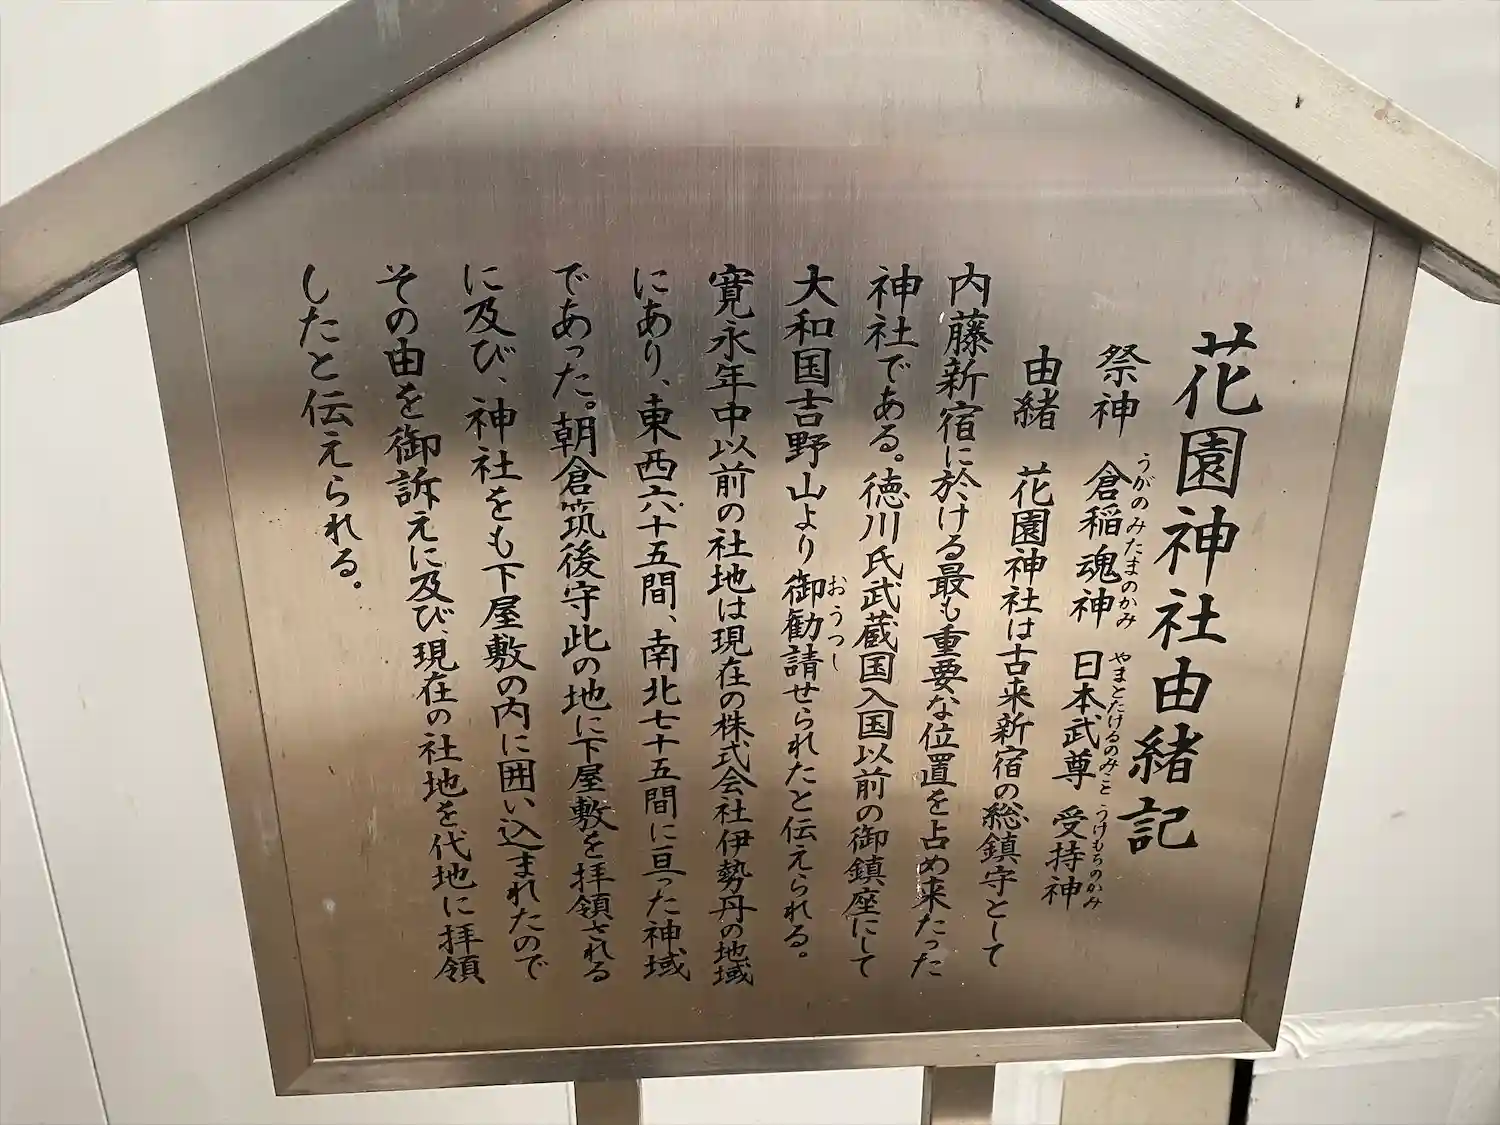 花園神社由緒記
祭神 倉稲魂神 日本武尊 受持神
うがのみたまのかみ やまとたけるのみこと うけもちのかみ
由緒 花園神社は古来新宿の総鎮守として
内藤新宿に於ける最も重要な位置を占め来たった
神社である。徳川氏武蔵国入国以前の御鎮座にして
大和国吉野山より御勧請せられたと伝えられる。
おうつし
寛永年中以前の社地は現在の株式会社伊勢丹の地域
にあり、東西六十五間、南北七十五間に亘った神域
であった。朝倉筑後守此の地に下屋敷を拝領される
に及び、神社をも下屋敷の内に囲い込まれたので
その由を御訴えに及び、現在の社地を代地に拝領
したと伝えられる。